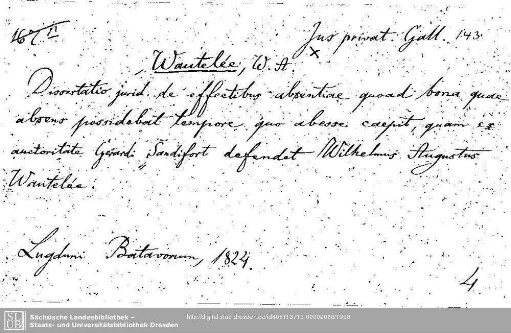 Jus privat. Gall. 143
x
Wautelée, W. A.
Dissertatio jurid. de effectibus absentiae quoad bona quae
absens possidebat tempore, quo abesse caepit, quam ex
auctoritate Gerardi Sandifort defendet Wilhelmus Augustus
Wautelée.
Lugduni Batavorum, 1824.
4
Sächsische Landesbibliothek –
Staats- und Universitätsbibliothek Dresden